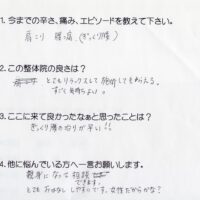 1. 今までの辛さ、痛み、エピソードを教えて下さい。
肩こり 腰痛(ぎっくり腰)
2. この整体院の良さは?
とてもリラックスして施術してもらえる。
すごく気持ちよい。
3. ここに来て良かったなぁと思ったことは?
ぎっくり腰の治りが早い!!
4. 他に悩んでいる方へ一言お願いします。
親身になって相談
できます。
とても お話し しやすいです。女性だからかな?